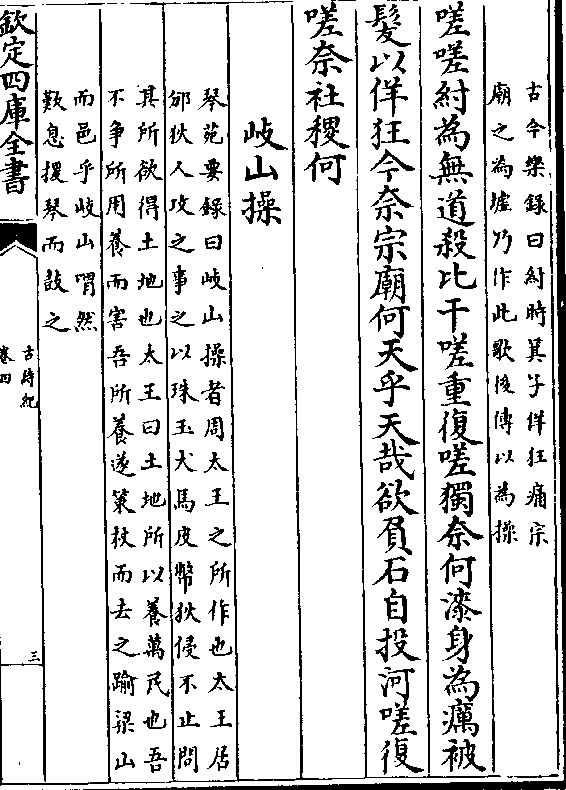 古今樂錄曰紂時箕子佯狂痛宗
廟之為墟乃作此歌後傳以為操
嗟嗟紂為無道殺比干嗟重復嗟獨奈何漆身為癘被
髮以佯狂今奈宗廟何天乎天哉欲負石自投河嗟復
嗟奈社稷何
岐山操
琴苑要錄曰岐山操者周太王之所作也太王居
邠狄人攻之事之以珠玉犬馬皮幣狄侵不止問
其所欲得土地也太王曰土地所以養萬民也吾
不爭所用養而害吾所養遂策杖而去之踰梁山
而邑乎岐山喟然
歎息援琴而鼓之
欽定四庫全書
古詩紀
卷四
三